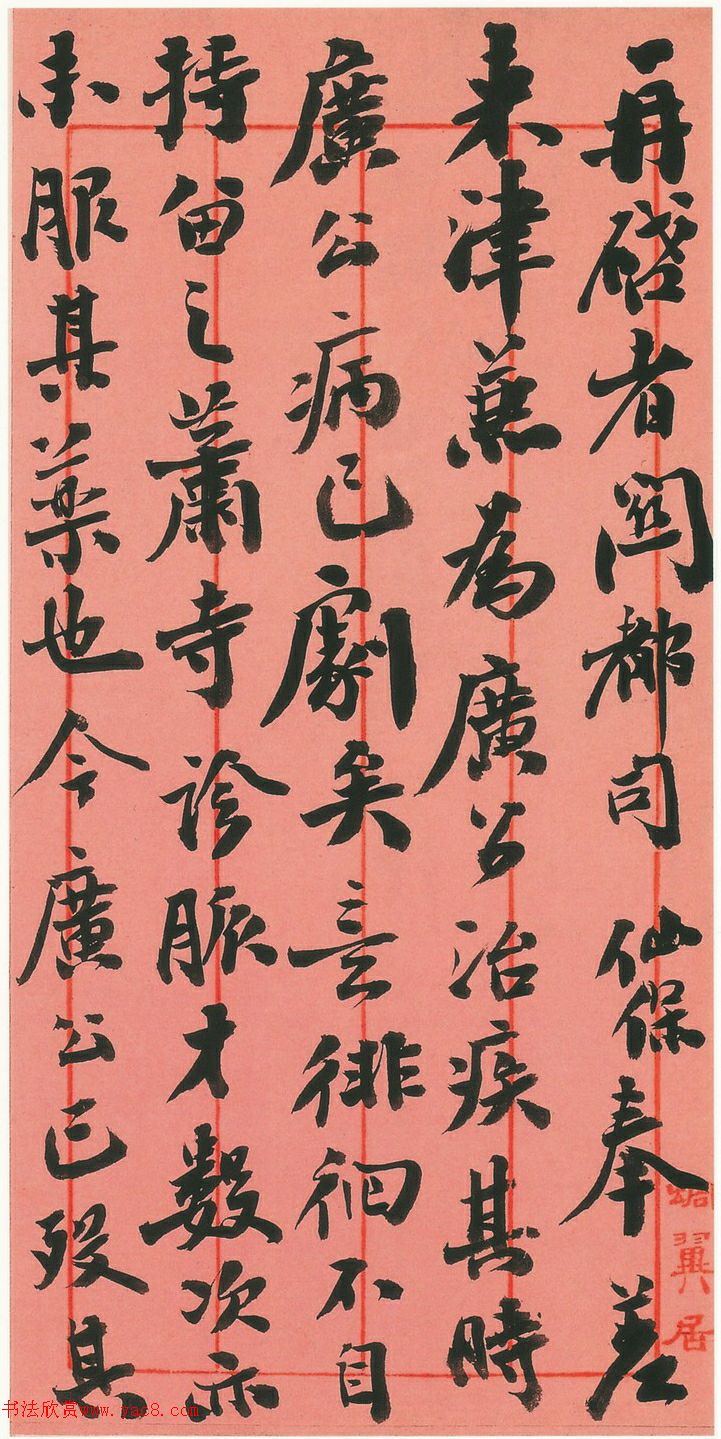 再啟者關都司仙保奉差
来津兼為廣公治疾其時
廣公病已劇矣意徘徊不自
持留之蕭寺診脈才數次亦
未服其藥也今廣公已歿其
翼居
书法欣赏www.yac8.com